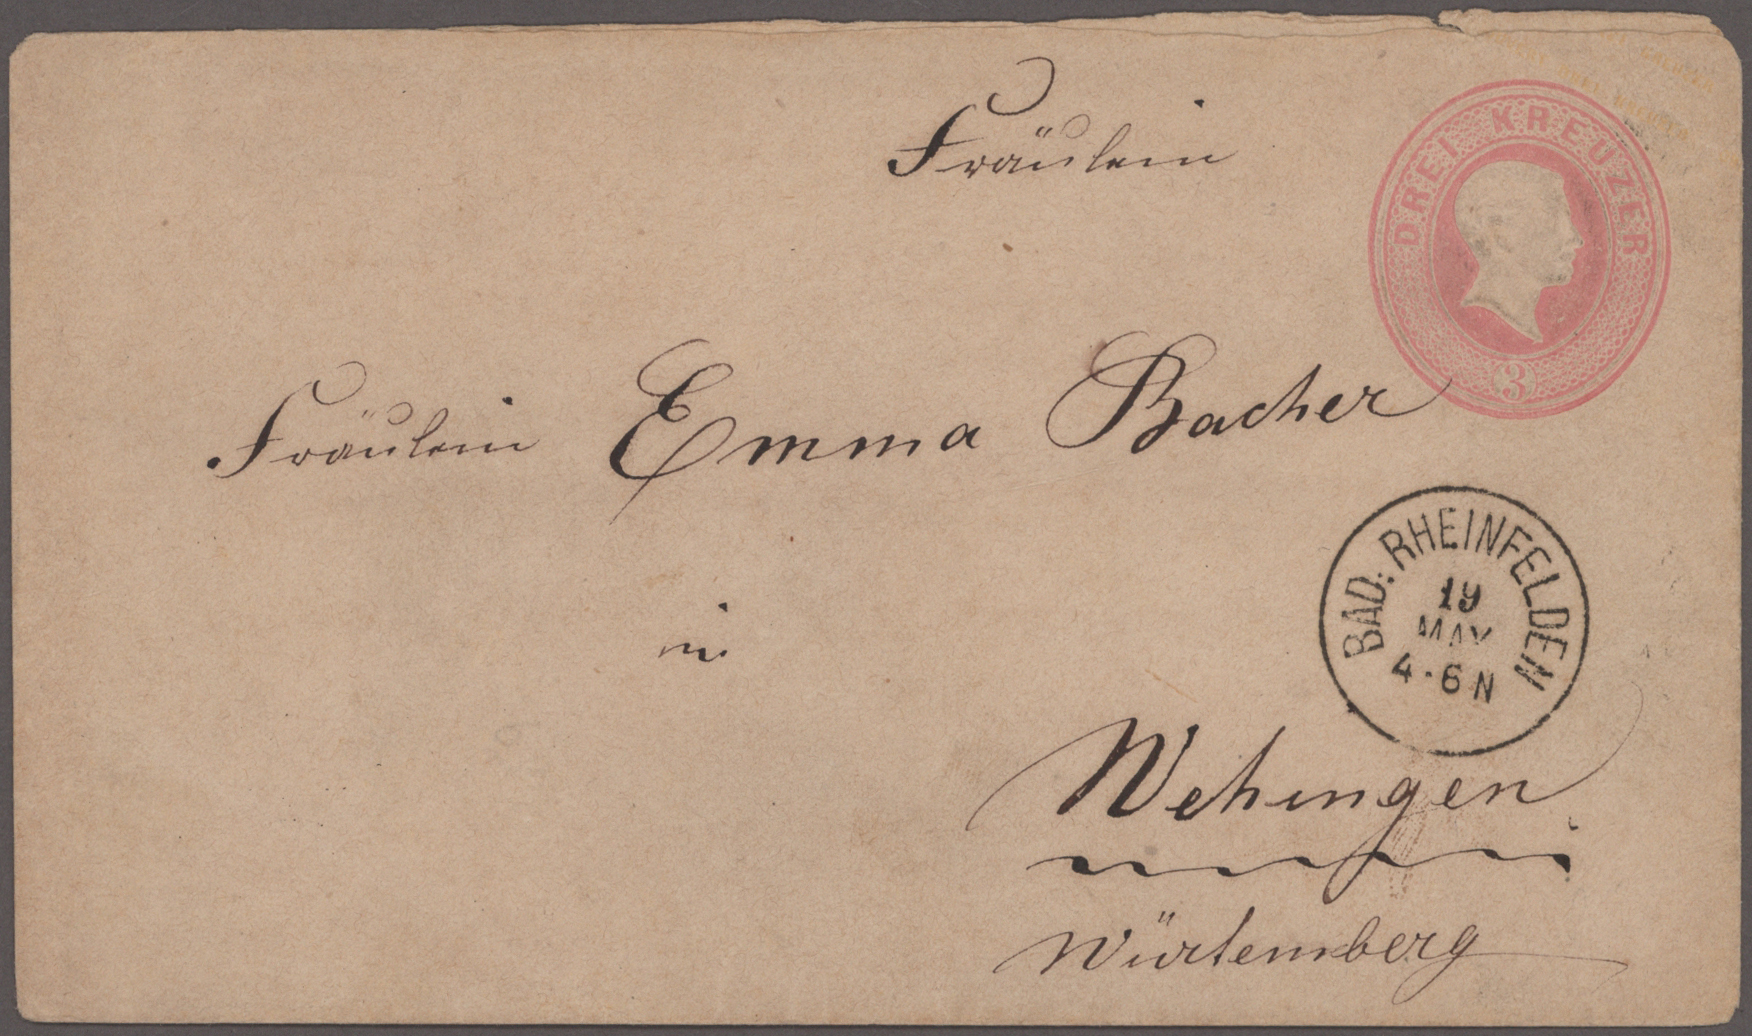 Fräulein
DREI KREUZER
3
Fräulein Emma Bacher
BAD. RHEINFELDEN
19
MAY
4·6 N
in
Wehingen
Würtemberg